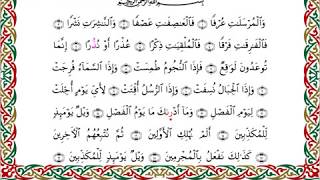 بِسْمِ ٱللَّهِ ٱلرَّحْمَٰنِ ٱلرَّحِيمِ
وَٱلْمُرْسَلَٰتِ عُرْفًا ۝ فَٱلْعَٰصِفَٰتِ عَصْفًا ۝ وَٱلنَّٰشِرَٰتِ نَشْرًا ۝
فَٱلْفَٰرِقَٰتِ فَرْقًا ۝ فَٱلْمُلْقِيَٰتِ ذِكْرًا ۝ عُذْرًا أَوْ نُذْرًا ۝ إِنَّمَا
تُوعَدُونَ لَوَٰقِعٌ ۝ فَإِذَا ٱلنُّجُومُ طُمِسَتْ ۝ وَإِذَا ٱلسَّمَآءُ فُرِجَتْ
۝ وَإِذَا ٱلْجِبَالُ نُسِفَتْ ۝ وَإِذَا ٱلرُّسُلُ أُقِّتَتْ ۝ لِأَيِّ يَوْمٍ أُجِّلَتْ
۝ لِيَوْمِ ٱلْفَصْلِ ۝ وَمَآ أَدْرَىٰكَ مَا يَوْمُ ٱلْفَصْلِ ۝ وَيْلٌ يَوْمَئِذٍ
لِّلْمُكَذِّبِينَ ۝ أَلَمْ نُهْلِكِ ٱلْأَوَّلِينَ ۝ ثُمَّ نُتْبِعُهُمُ ٱلْءَاخِرِينَ
۝ كَذَٰلِكَ نَفْعَلُ بِٱلْمُجْرِمِينَ ۝ وَيْلٌ يَوْمَئِذٍ لِّلْمُكَذِّبِينَ ۝